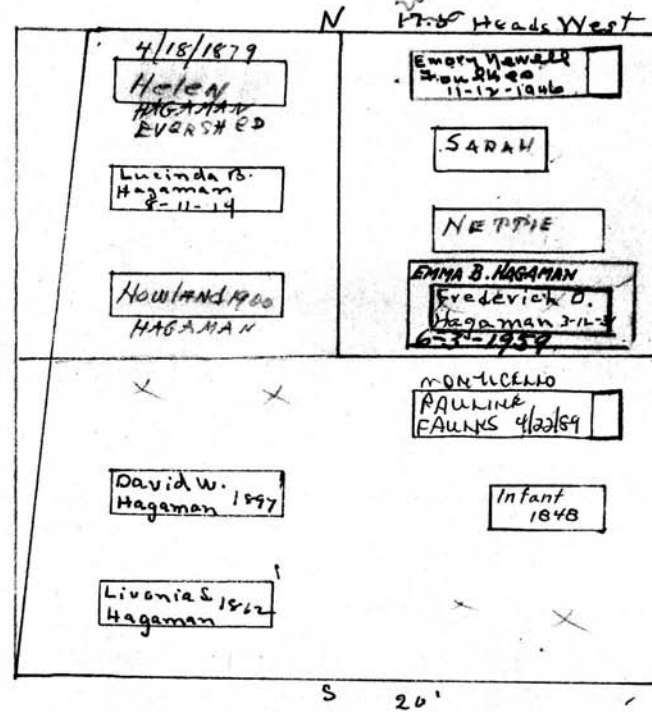 N
Heads West
4/18/1879
Helen
HAGAMAN
EVERSHED
Lucinda B.
Hagaman
8-11-14
Howland 1900
HAGAMAN
Emory Newell
11-12-1946
SARAH
NETTIE
EMMA B. HAGAMAN
Frederick O.
Hagaman 3-12-
6-3-1959
MONTICELLO
PAULINE
4/22/89
David W.
Hagaman 1897
Infant
1848
Livonia S. 1862
Hagaman
S 20'